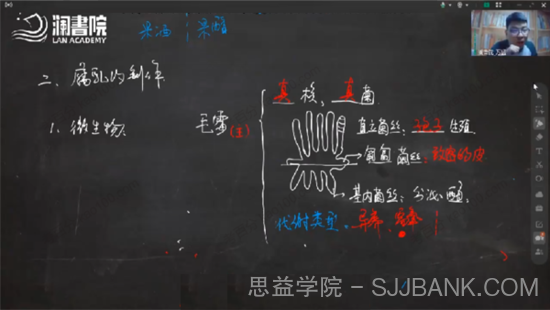 澜書院
LAN ACADEMY
果酒 果醋
二、腐乳的制作
1. 微生物
毛霉(主)
真核、真菌
直立菌丝：孢子生殖
匍匐菌丝：致密的皮
基内菌丝：分泌酶。
代谢类型：异养、
思益学院 – SJJBANK.COM